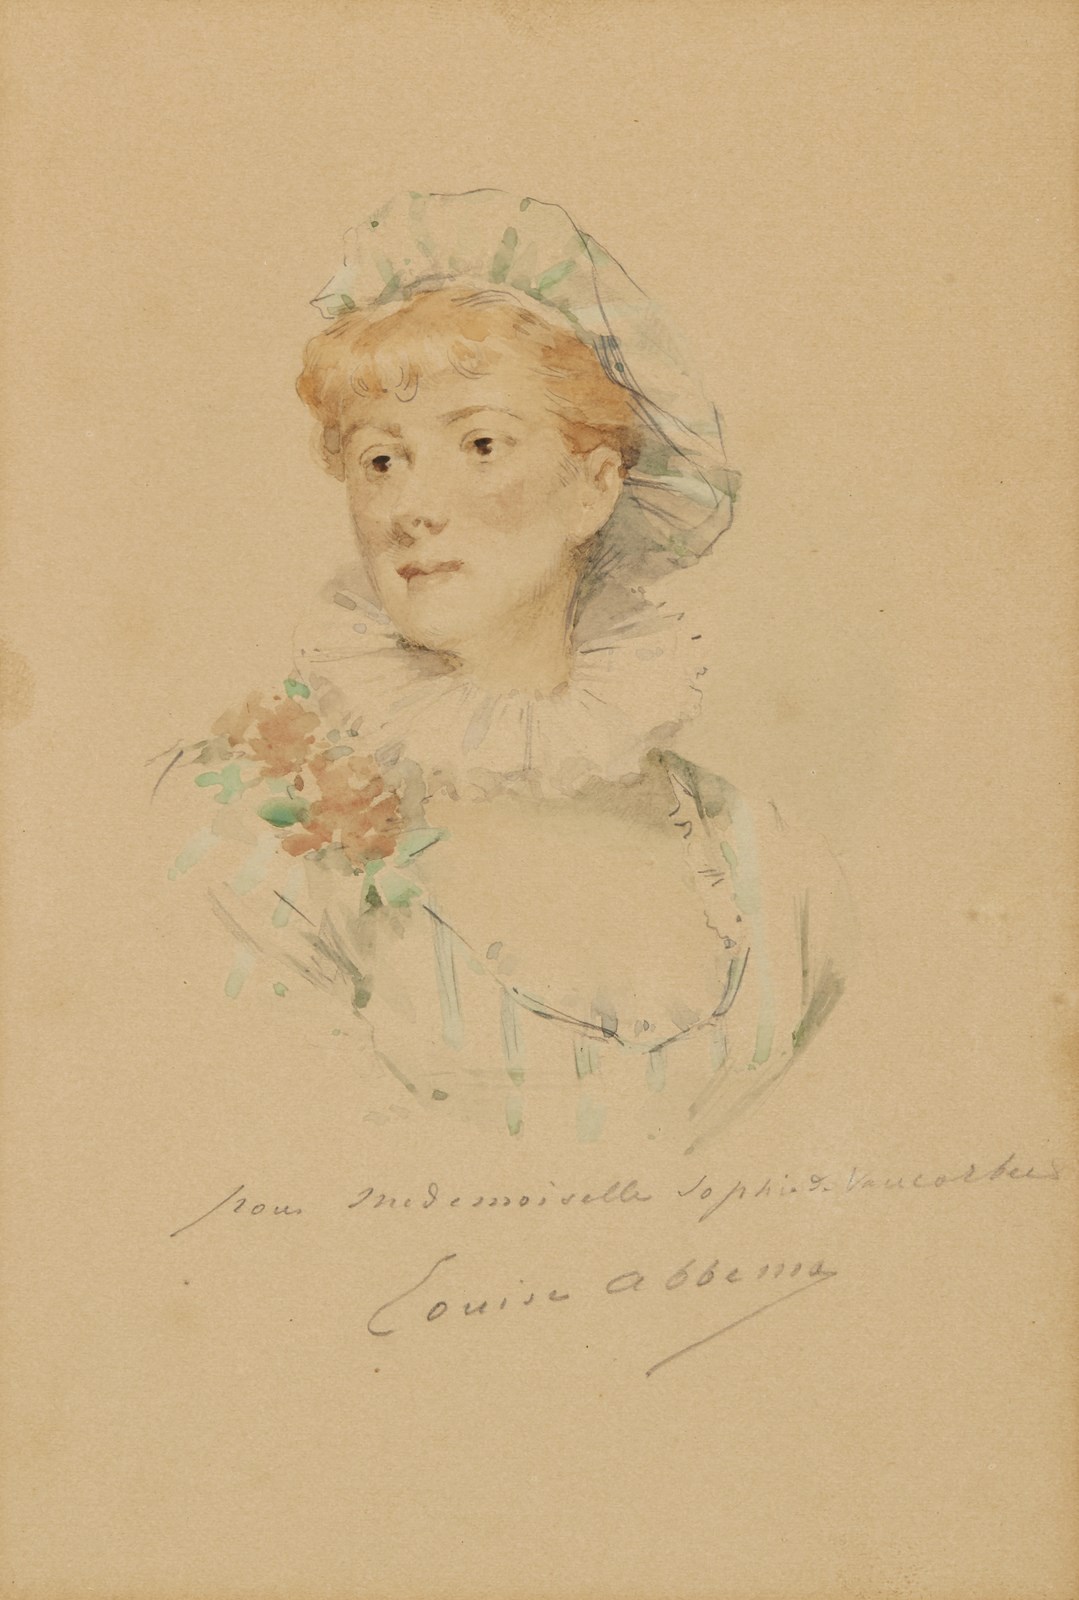 pour Mademoiselle Sophie de Vaucorbeil
Louise Abbema